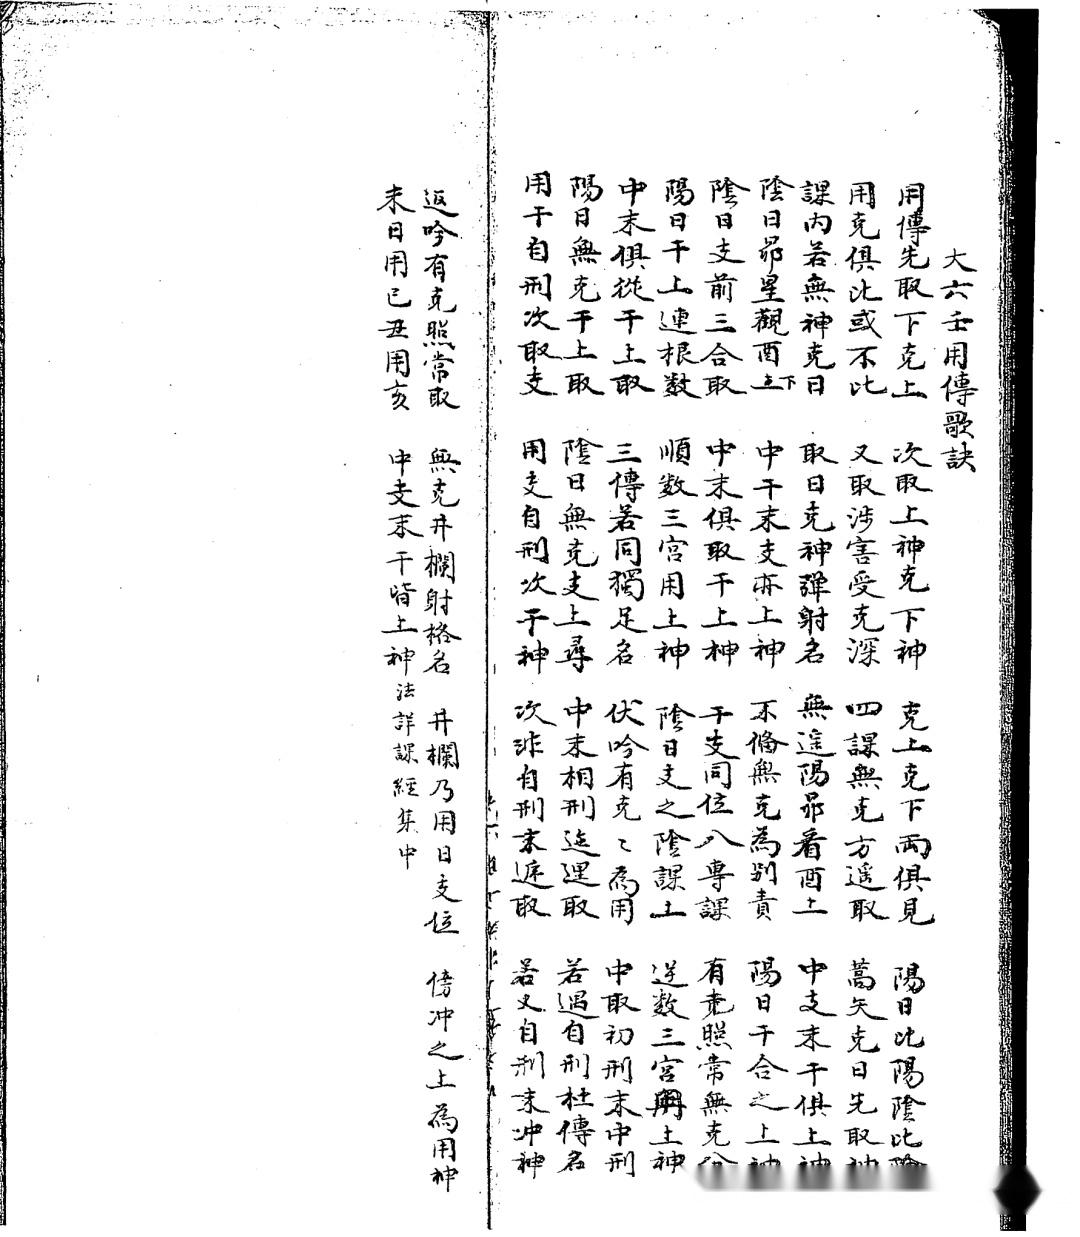 大六壬用傳歌訣
用傳先取下克上 次取上神克下神 克上克下兩俱見 陽日比陽陰比
用克俱比或不比 又取涉害受克深 四課無克方遥取 蒿矢克日先取神
課內若無神克日 取日克神彈射名 無遥陽昴看酉上 中支末干俱上神
陰日昴星觀酉下 中干末支亦上神 不俻無克為別責 陽日干合之上神
陰日支前三合取 中末俱取干上神 干支同位八專課 有克照常無克
陽日干上連根数 順数三宮用上神 陰日支之陰課上 逆数三宮用上神
中末俱從干上取 三傳若同獨足名 伏吟有克〻為用 中取初刑末中刑
陽日無克干上取 陰日無克支上尋 中末相刑迤逦取 若遇自刑杜傳名
用干自刑次取支 用支自刑次干神 次非自刑末遞取 若又自刑末冲神
返吟有克照常取 無克井欄射格名 井欄乃用日支位 傍冲之上為用神
未日用巳丑用亥 中支末干皆上神 法詳課經集中